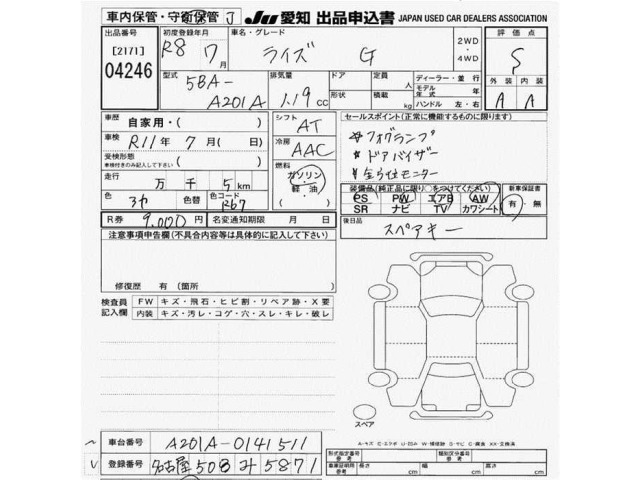 車内保管・守衛保管 J
JU 愛知 出品申込書 JAPAN USED CAR DEALERS ASSOCIATION
出品番号
[2171]
04246
初度登録年月
R8年 7月
車名・グレード
ライズ G
2WD
・
4WD
評価点
S
外装 内装
A A
型式
5BA-
A201A
排気量
1.19 cc
ドア
形状
定員 人
積載 kg
ディーラー・並行
モデル年式 年
ハンドル 左・右
車歴
自家用・( )
車検
R11年 7月( 日)
受検形態
*車検付きのみ記入して下さい
( )
走行
万 千 5 km
色
色替
色コード
R67
R券 9,000円
名変通知期限 月 日
シフト
AT
冷房
AAC
燃料
ガソリン
軽油
セールスポイント(正常に機能するものに限ります)
*フォグランプ
*ドアバイザー
装備品(純正品に限り○をつけてください)
PS PW エアB AW
SR ナビ TV カワシート
新車保証書
有・無
後日品
スペアキー
注意事項申告欄(不具合内容等は具体的に記入して下さい)
修復歴 有(箇所 )
検査員記入欄
FW キズ・飛石・ヒビ割・リペア跡・X要
内装 キズ・汚レ・コゲ・穴・スレ・キレ・破レ
スペア
車台番号 A201A-0141511
登録番号 名古屋 508 み 5871
形式指定番号 参考
類別区分番号 参考
車庫証明用参考 長さ cm 幅 cm 高さ cm